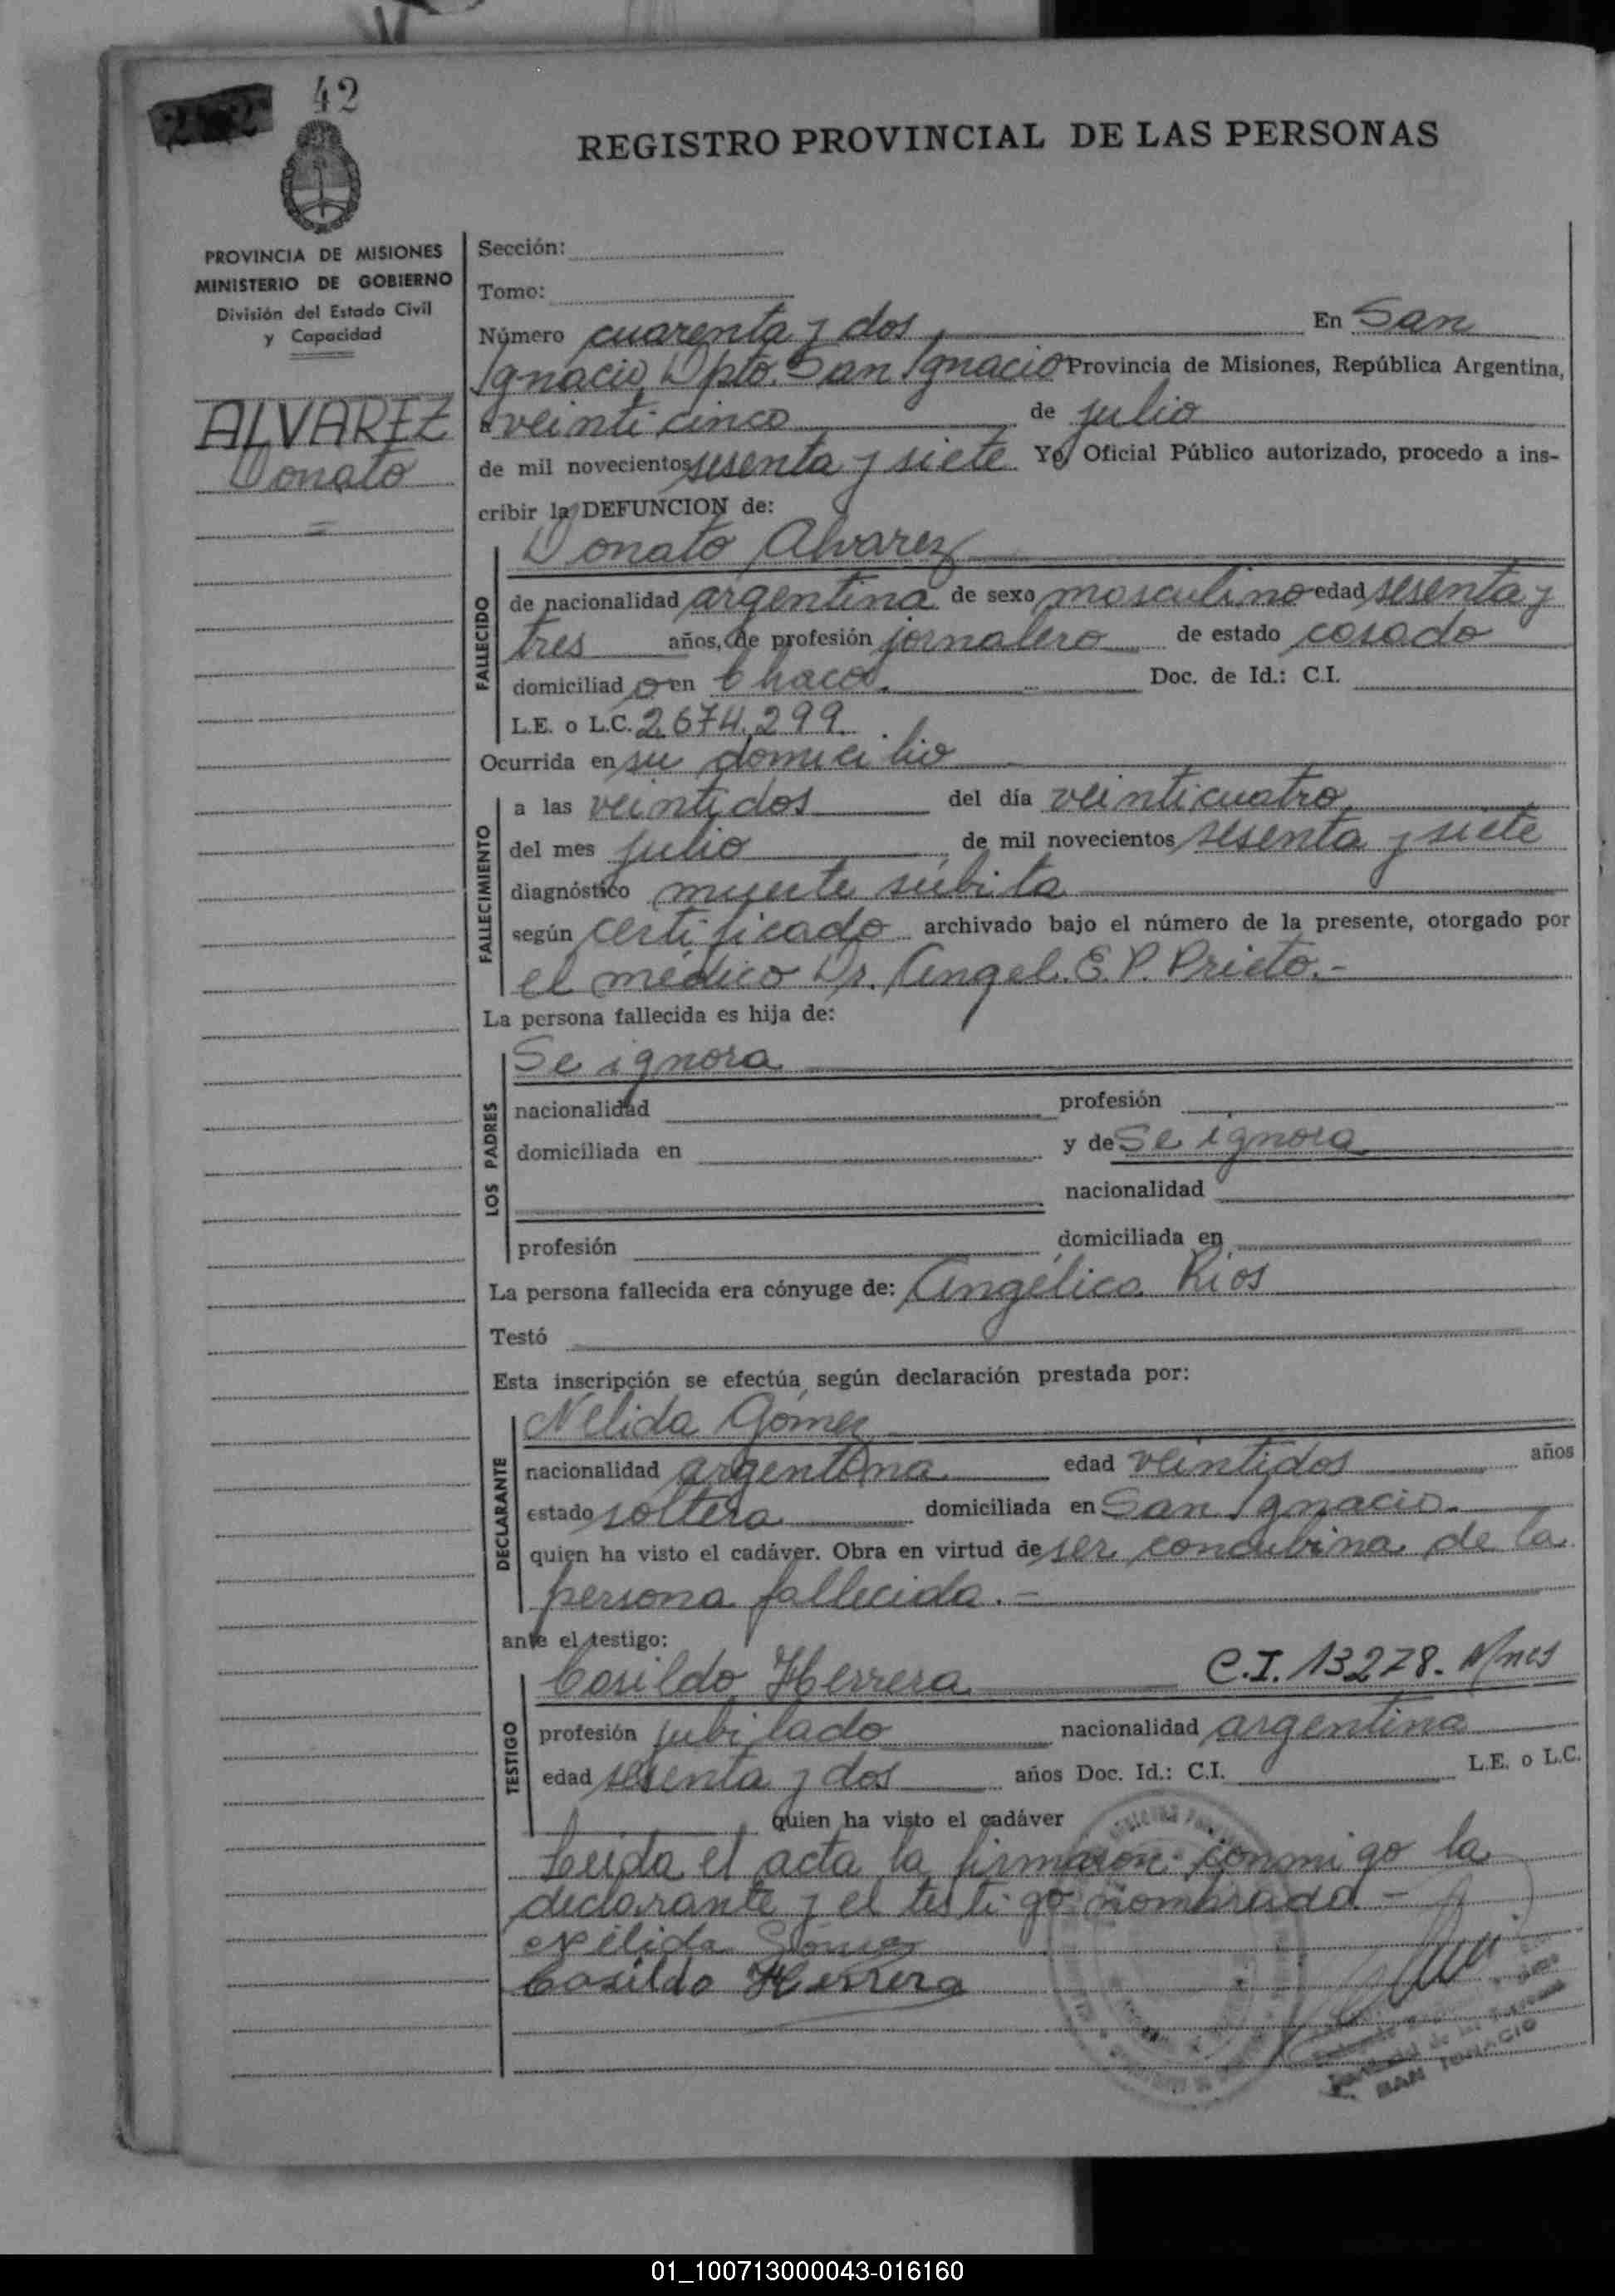 42
REGISTRO PROVINCIAL DE LAS PERSONAS
PROVINCIA DE MISIONES
MINISTERIO DE GOBIERNO
División del Estado Civil
y Capacidad
ALVAREZ
Donato
Sección:
Tomo:
Número cuarenta y dos En San
Ignacio, Dpto. San Ignacio Provincia de Misiones, República Argentina,
a veinticinco de julio
de mil novecientos sesenta y siete Yo, Oficial Público autorizado, procedo a ins-
cribir la DEFUNCION de:
Donato Alvarez
FALLECIDO
de nacionalidad argentina de sexo masculino edad sesenta y
tres años, de profesión jornalero de estado casado
domiciliado en Chaco. Doc. de Id.: C.I.
L.E. o L.C. 2.674.299.
Ocurrida en su domicilio
FALLECIMIENTO
a las veintidos del día veinticuatro
del mes julio de mil novecientos sesenta y siete
diagnóstico muerte súbita
según certificado archivado bajo el número de la presente, otorgado por
el médico Dr. Angel. E. P. Prieto.-
La persona fallecida es hija de:
LOS PADRES
Se ignora
nacionalidad profesión
domiciliada en y de Se ignora
nacionalidad
profesión domiciliada en
La persona fallecida era cónyuge de: Angélica Rios
Testó
Esta inscripción se efectúa según declaración prestada por:
DECLARANTE
Nélida Gómez
nacionalidad argentina edad veintidos años
estado soltera domiciliada en San Ignacio.
quien ha visto el cadáver. Obra en virtud de ser concubina de la
persona fallecida.-
ante el testigo:
TESTIGO
Casildo Herrera C.I. 13278. M/nes
profesión jubilado nacionalidad argentina
edad sesenta y dos años Doc. Id.: C.I. L.E. o L.C.
quien ha visto el cadáver
Leida el acta la firmaron conmigo la
declarante y el testigo nombrado-
Nélida Gómez
Casildo Herrera
SAN IGNACIO
01_100713000043-016160